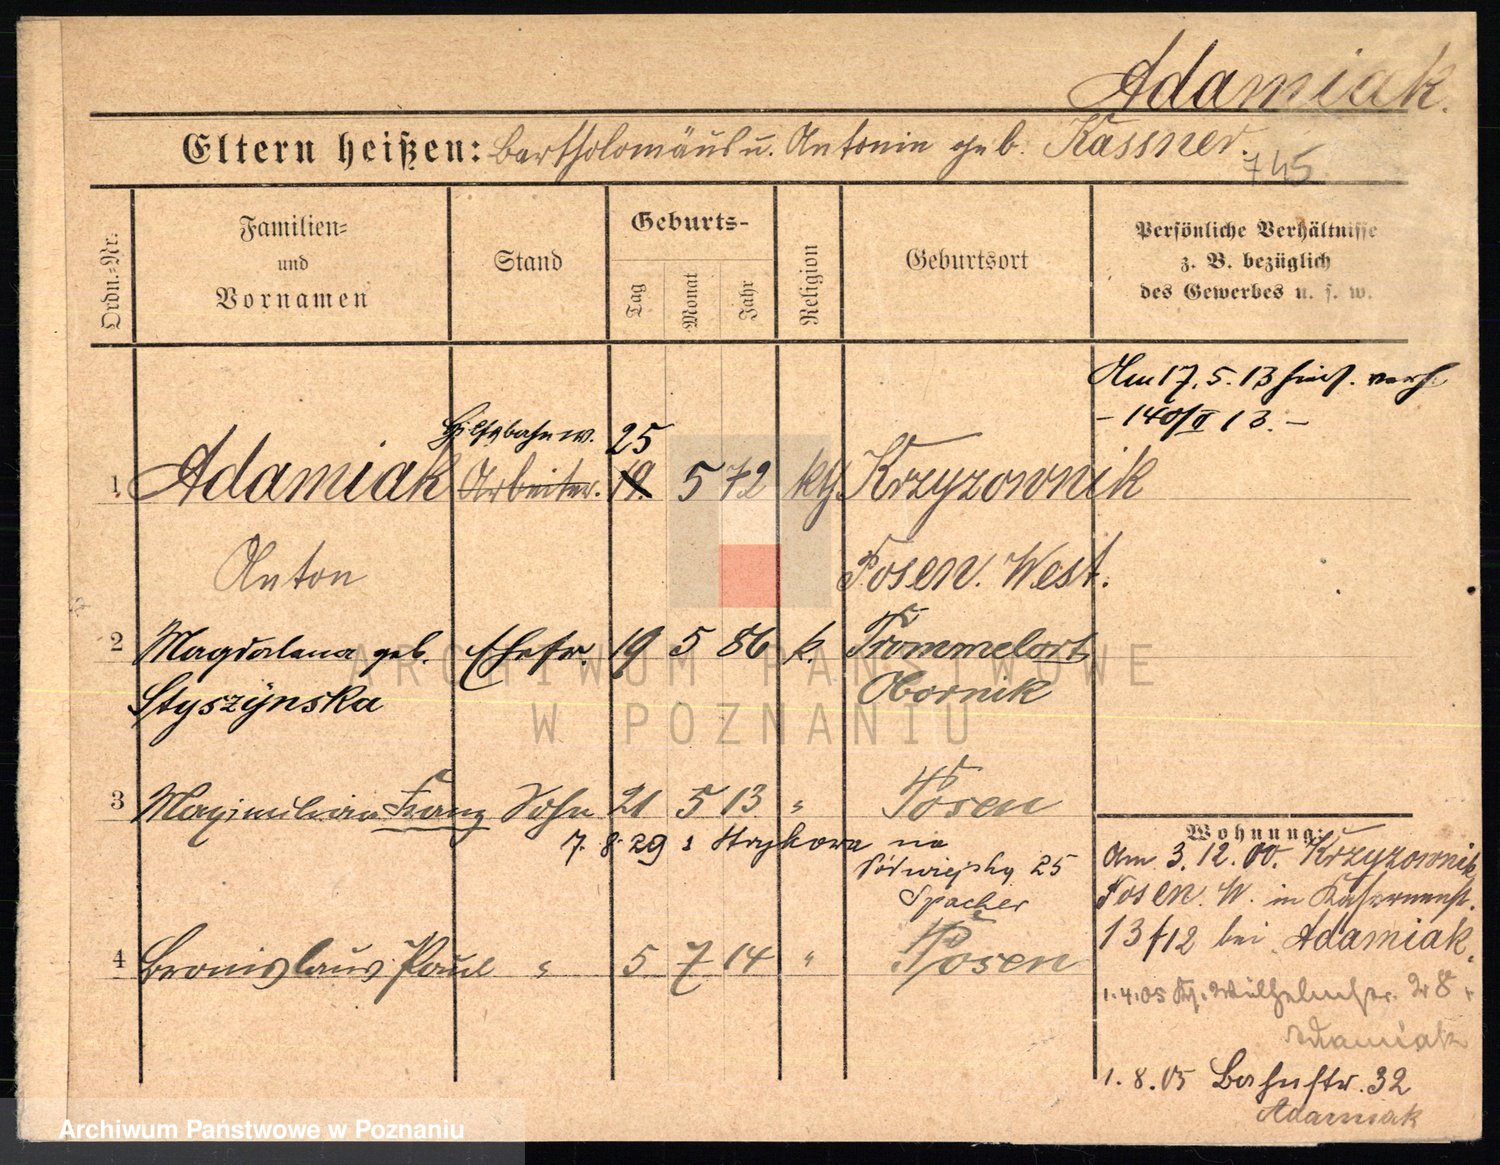 Adamiak.
Eltern heißen: Bartholomäus u. Antonin geb. Kassner.
745
Ordn.-Nr.
Familien- und Vornamen
Stand
Geburts-
Tag
Monat
Jahr
Religion
Geburtsort
Persönliche Verhältnisse
z. B. bezüglich
des Gewerbes u. s. w.
Am 17. 5. 13 hies. verh.
- 140/II 13. -
Hilfsbahnw. 25
1 Adamiak Arbeiter. 19. 5 72 kth Krzyzownik
Anton Posen. West.
2 Magdalena geb. Ehefr. 19 5 86 k. Trommelort
Styszynska Obornik
3 Maximilian Franz Sohn 21 5 13 " Posen
7. 8. 29 : Strykowa na
25
Spacher
4 Bronislaus Paul " 5 7 14 " Posen
Wohnung:
Am 3. 12. 00. Krzyzownik
Posen. W. in Kasernenst.
13 f12 bei Adamiak.
1.4.05 Wilhelmstr. 28
Adamiak
1. 8. 05 Bahnstr. 32
Adamiak
ARCHIWUM PAŃSTWOWE
W POZNANIU
Archiwum Państwowe w Poznaniu